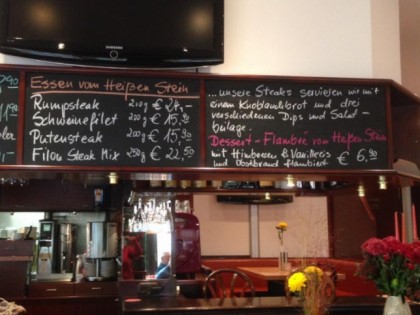 SAMSUNG
Essen vom Heißen Stein
Rumpsteak 210g € 24,-
Schweinefilet 200g € 15,90
Putensteak 200g € 15,90
Filou Steak Mix 250g € 22,50
...unsere Steaks servieren wir mit
einem Knoblauchbrot und drei
verschiedenen Dips und Salat-
beilage.
Dessert-Flambie vom Heißen Stein
mit Himbeeren & Vanilleeis
und Obstbrand flambiert € 6,90